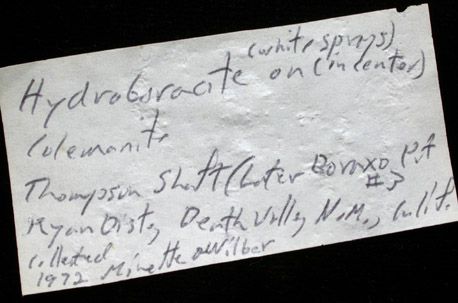 (white sprays)
Hydroboracite on (in center)
Colemanite
Thompson Shaft (later Boraxo Pit
#3
Ryan Dist., Death Valley N.M., Calif.
Collected
1972 Minette &Wilber